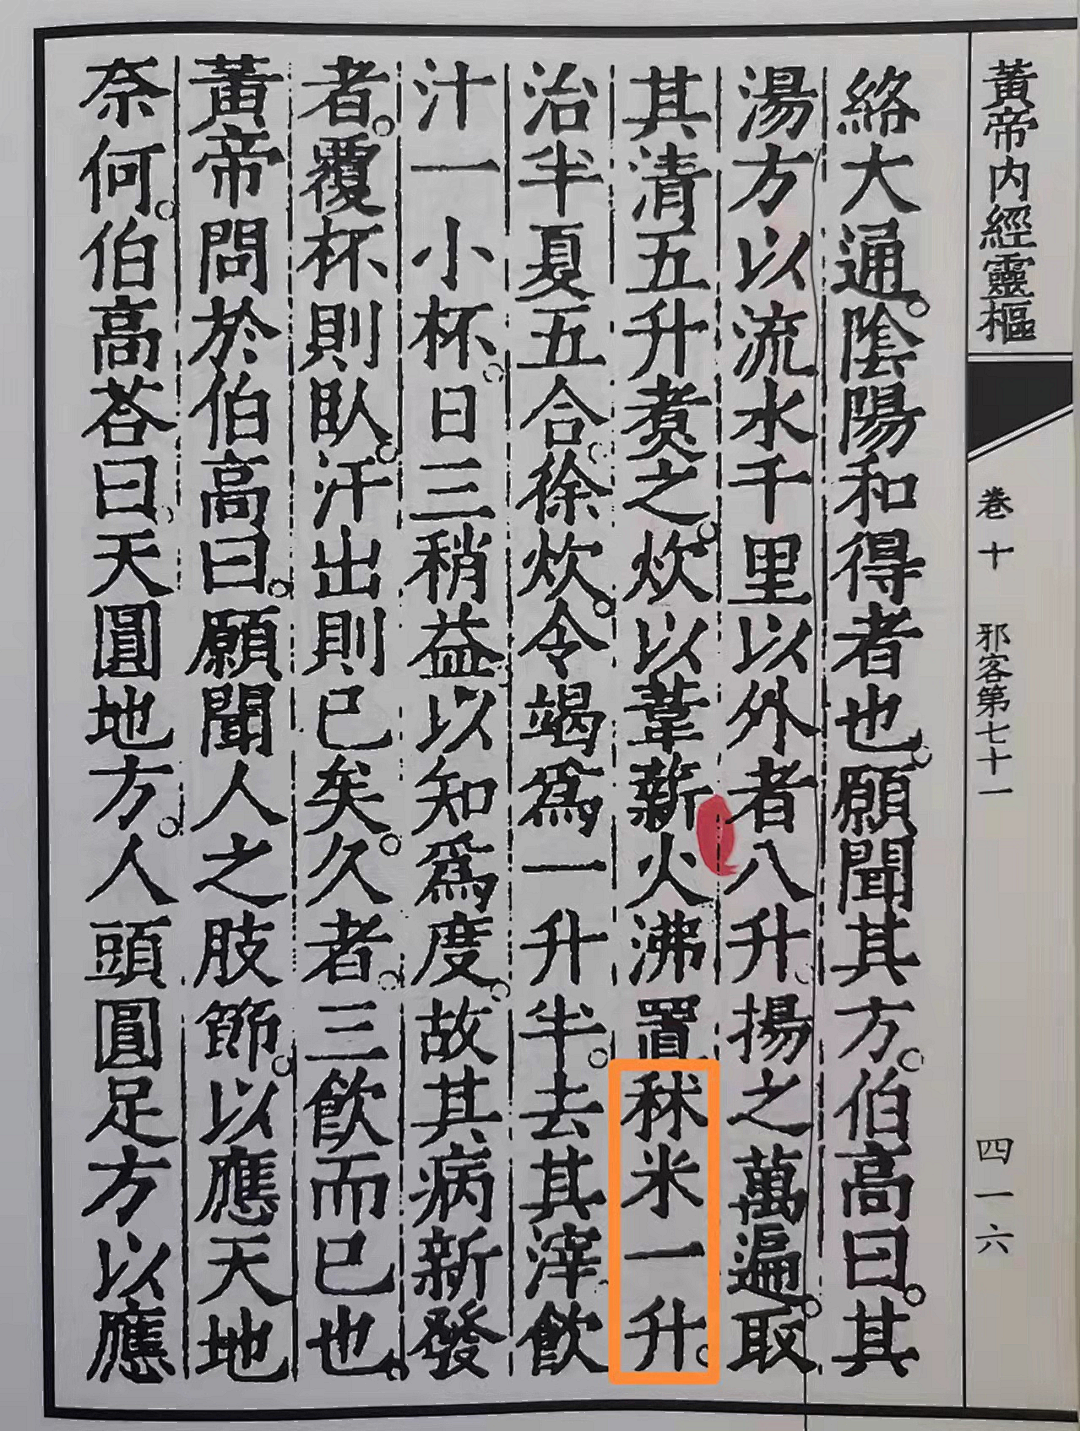 黃帝内經靈樞
卷十
邪客第七十一
四一六
絡大通。陰陽和得者也。願聞其方。伯高曰。其
湯方以流水千里以外者八升。揚之萬遍。取
其清五升煑之。炊以葦薪火沸置秫米一升。
治半夏五合。徐炊。令竭爲一升半。去其滓飲
汁一小杯。日三稍益。以知爲度。故其病新發
者。覆杯則臥。汗出則已矣。久者。三飲而已也。
黃帝問於伯高曰。願聞人之肢節。以應天地
奈何。伯高荅曰。天圓地方。人頭圓足方以應